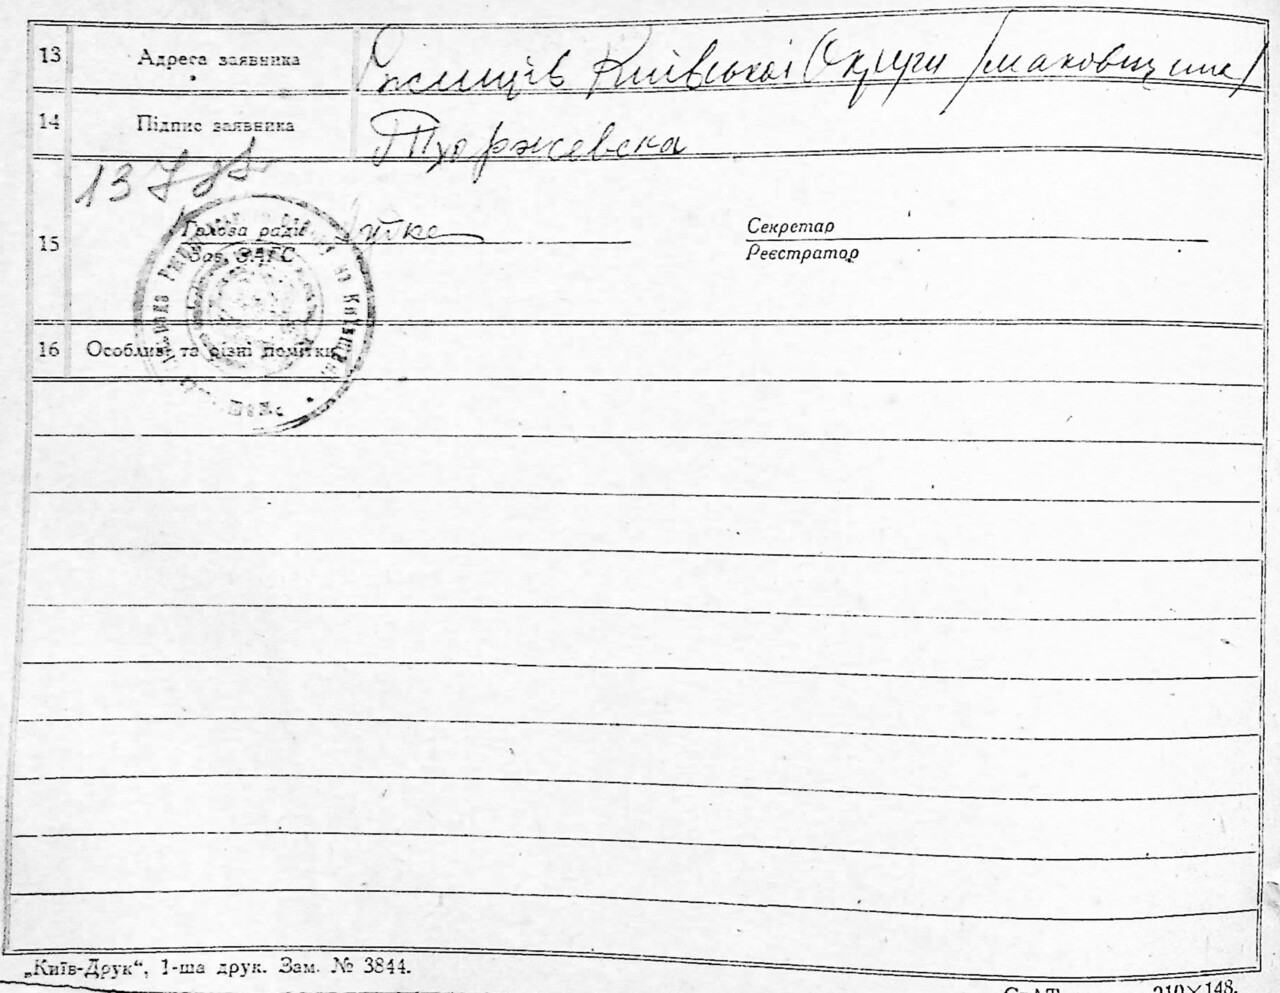 13 Адреса заявника Ржищів Київської Округи /маковщина/
14 Підпис заявника Туржевска
13
15 Голова радів
Зав. ЗАГС
Секретар
Реєстратор
16 Особливі та різні помітки
„Київ-Друк“, 1-ша друк. Зам. № 3844.
210×148.